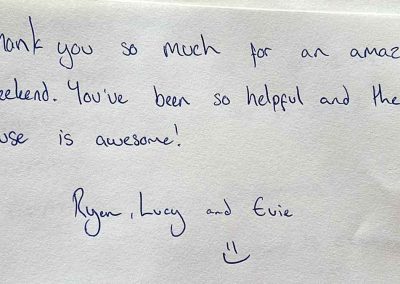 hank you so much for an amaz
eekend. You've been so helpful and the
use is awesome!
Ryan, Lucy and Evie